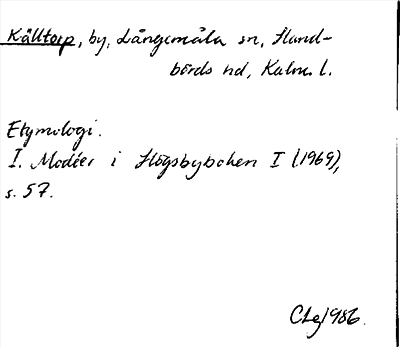 Källtorp, by, Långemåla sn, Hand-
börds hd, Kalm. l.
Etymologi.
I. Modéer i Högsbyboken I (1969),
s. 57.
CLej 1986.